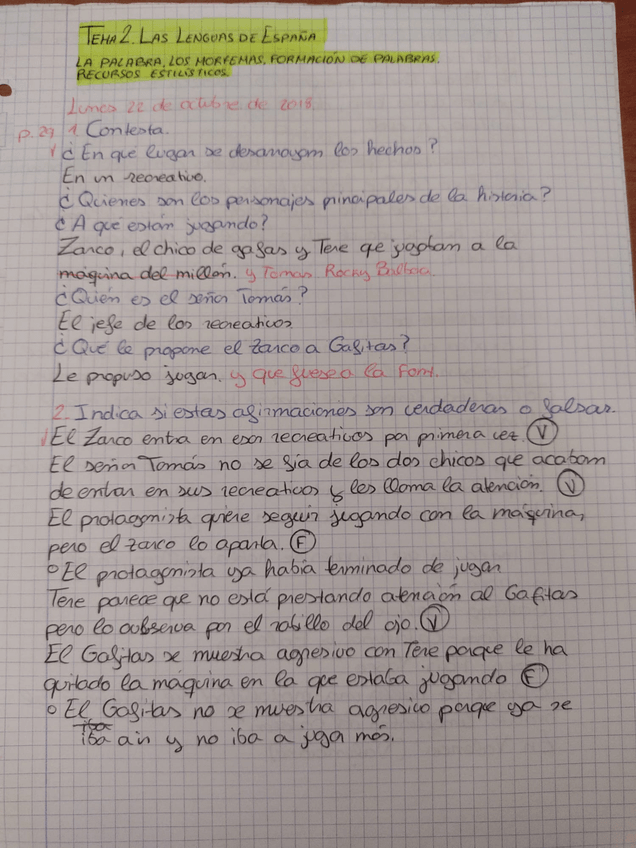 TEMA 2. LAS LENGUAS DE ESPAÑA
LA PALABRA, LOS MORFEMAS, FORMACIÓN DE PALABRAS.
RECURSOS ESTILÍSTICOS.
Lunes 22 de octubre de 2018
p. 29 1 Contesta.
¿En que lugar se desarrollan los hechos?
En un recreativo.
¿Quienes son los personajes principales de la historia?
¿A qué están jugando?
Zarco, el chico de gafas y Tere que jugaban a la
máquina del millón. y Tomas Rocky Balboa
¿Quién es el señor Tomás?
El jefe de los recreativos
¿Qué le propone el Zarco a Gafitas?
Le propuso jugar. y que fuese a la Font.
2. Indica si estas afirmaciones son verdaderas o falsas.
El Zarco entra en esos recreativos por primera vez. V
El señor Tomás no se fía de los dos chicos que acaban
de entrar en sus recreativos y les llama la atención. V
El protagonista quiere seguir jugando con la máquina,
pero el zarco lo aparta. F
El protagonista ya había terminado de jugar
Tere parece que no está prestando atención al Gafitas
pero lo observa por el rabillo del ojo. V
El Gafitas se muestra agresivo con Tere porque le ha
quitado la máquina en la que estaba jugando F
El Gafitas no se muestra agresivo porque ya se
iba a ir y no iba a juga más.